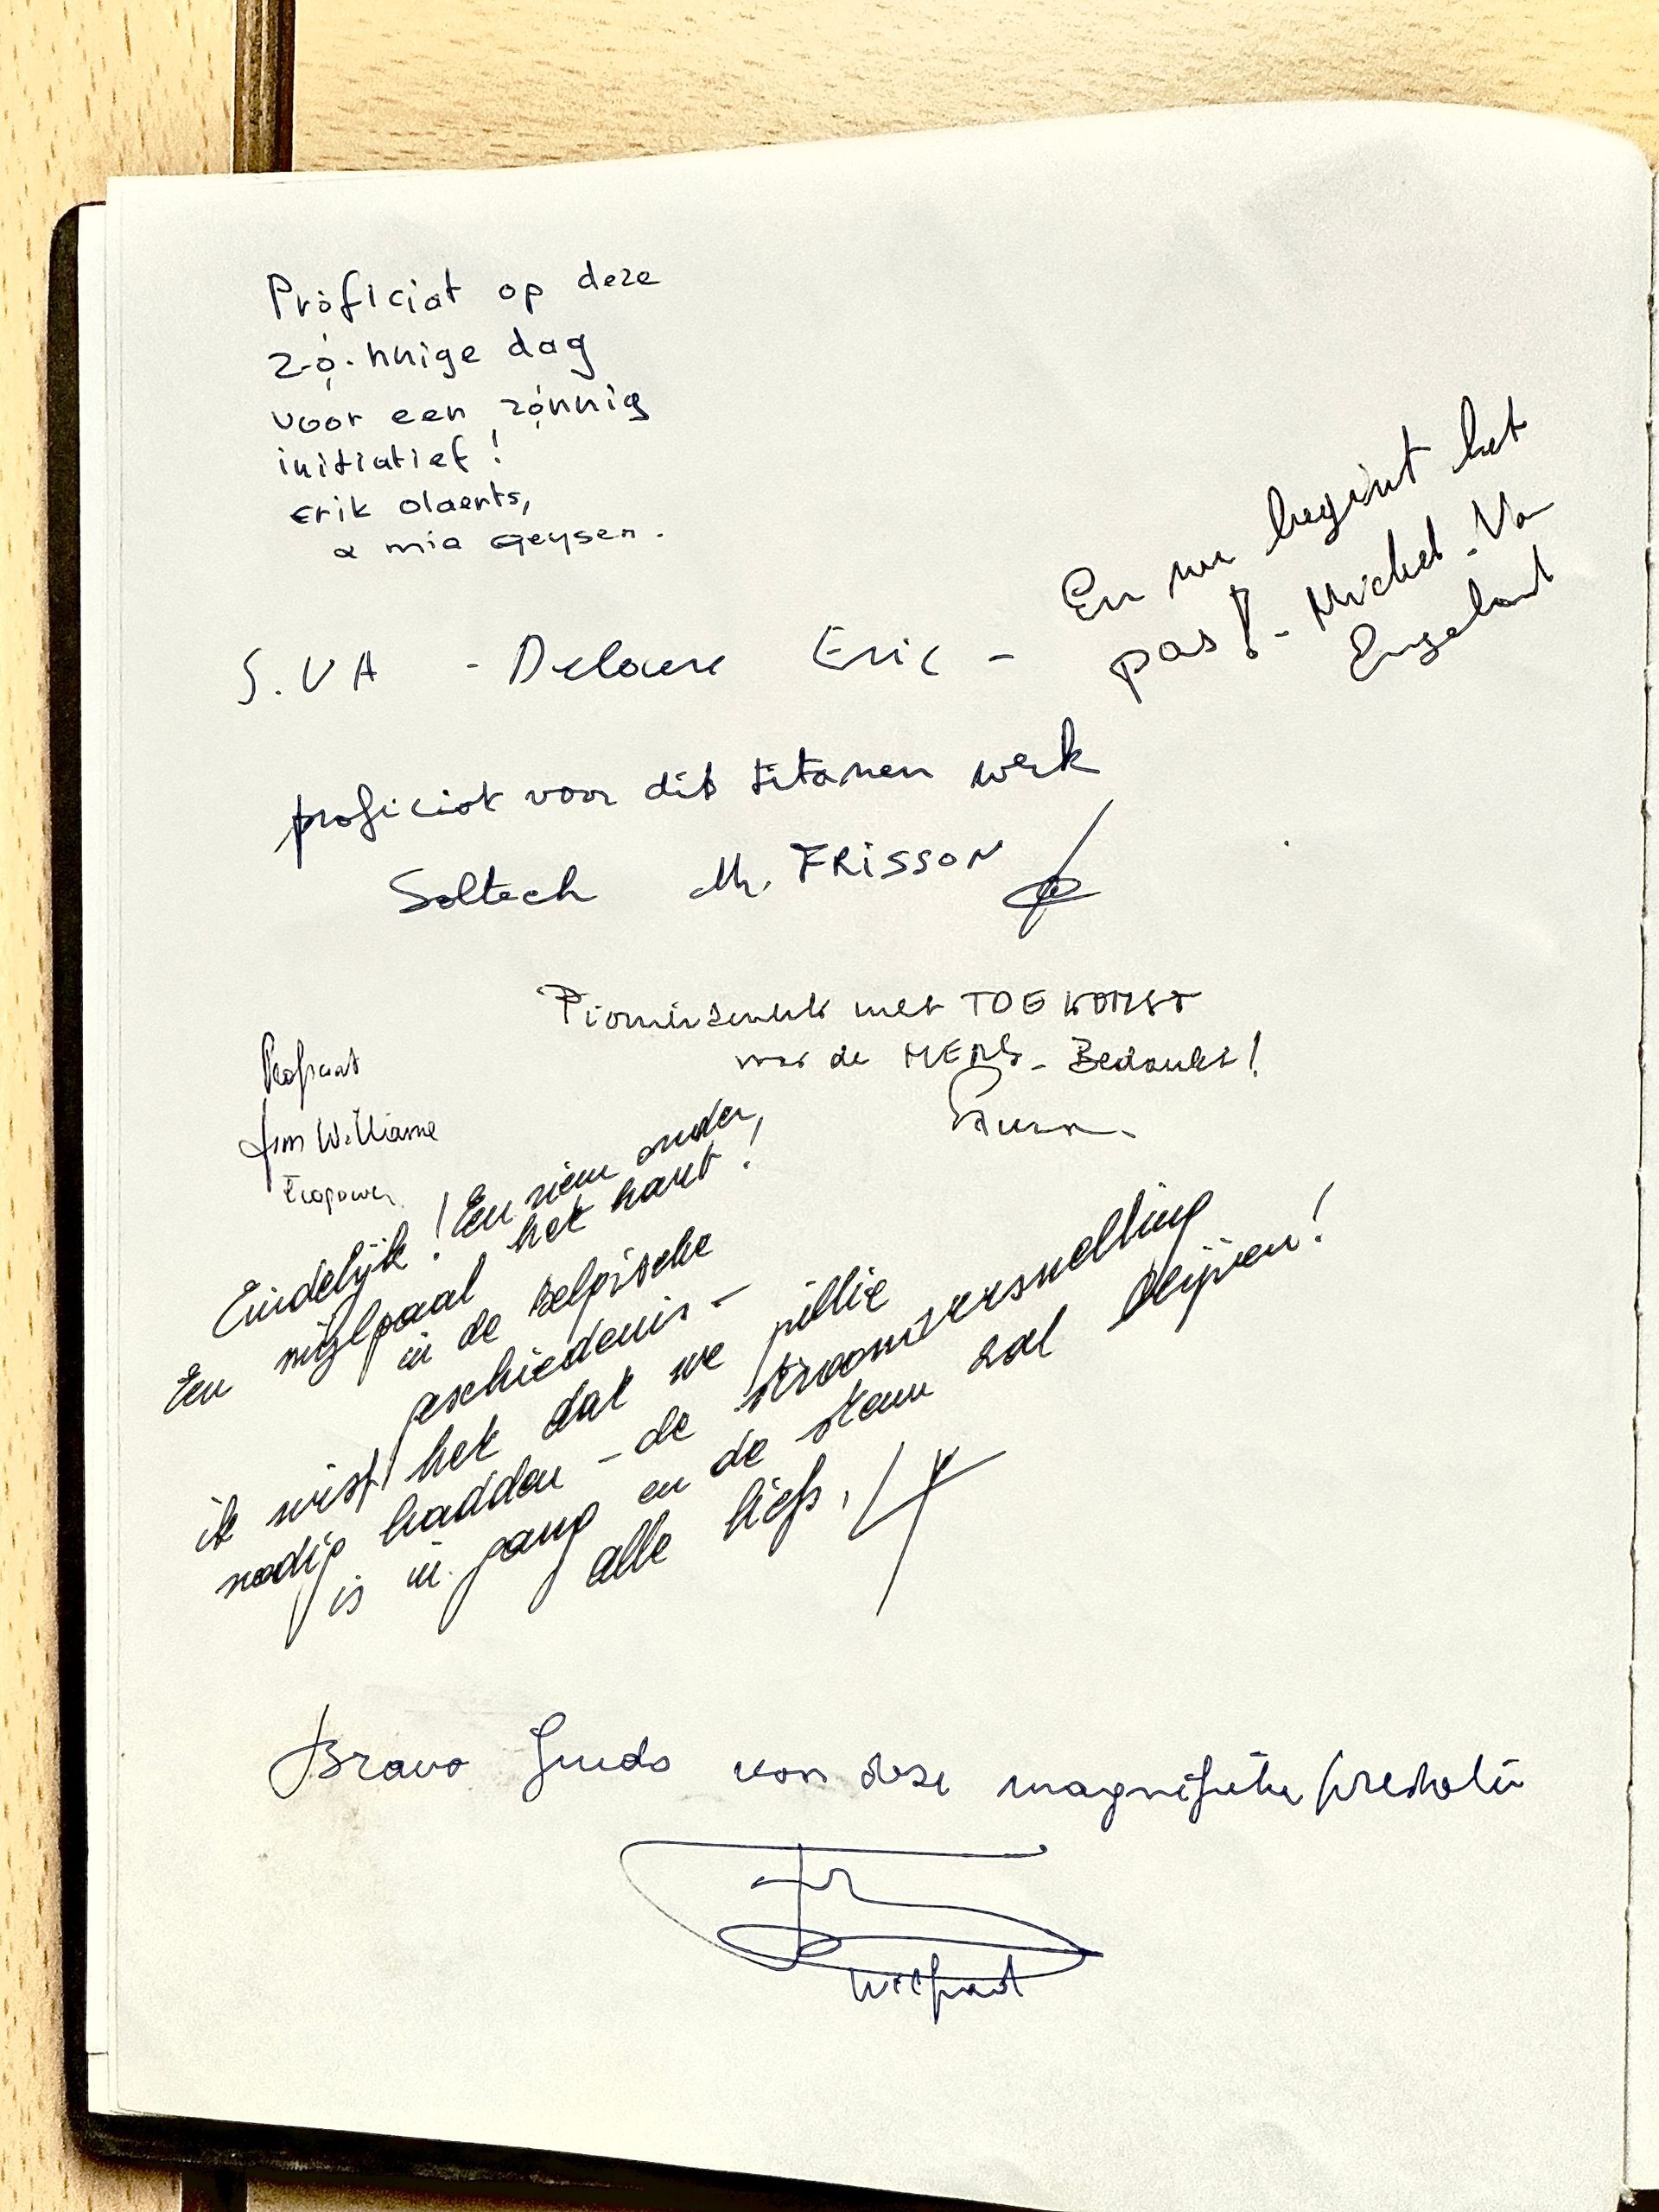 Proficiat op deze
zo.nnige dag
voor een zonnig
initiatief!
Erik Olaerts,
& mia Geysen.
En nu begint het
pas! - Michel Van
Engeland
S.VA - Delaere Eric -
proficiat voor dit titanen werk
Soltech M. FRISSON
Pionierswerk met TOEKOMST
voor de MENS - Bedankt!
Proficiat
Jim Williame
Ecopower
Eindelijk! Een riem onder
het hart!
Een mijlpaal
in de Belgische
geschiedenis -
ik wist het dat we jullie
nodig hadden - de stroomversnelling
is in gang en de stem zal blijven!
alle liefs,
Bravo Guido van deze magnifieke prestatie
Wilfried